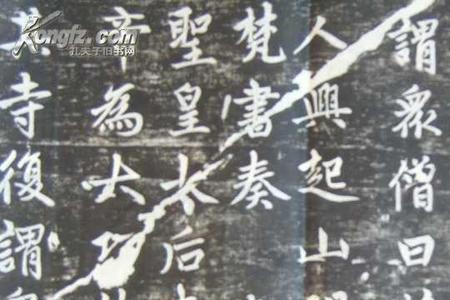 謂衆僧曰
人興起山
梵書奏
聖皇太后
帝為大功
寺復謂
Kongfz.com
孔夫子旧书网